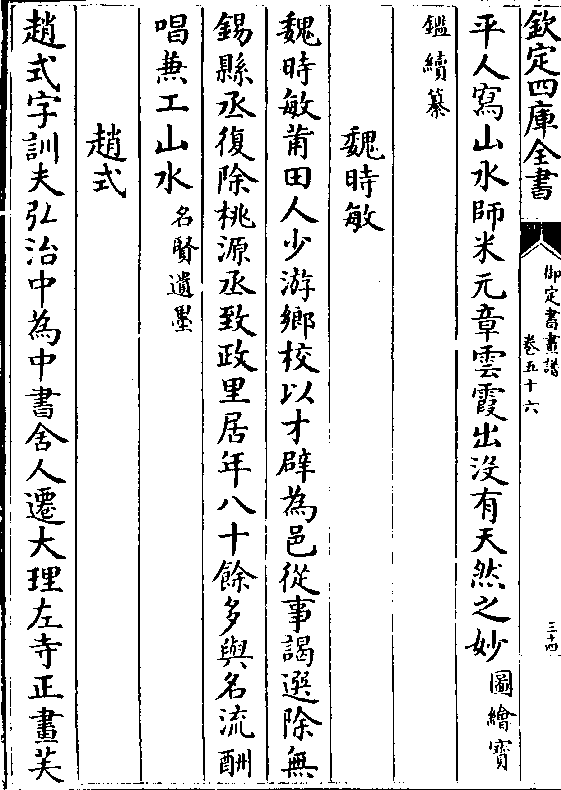 欽定四庫全書
御定書畫譜
卷五十六
三十四
平人寫山水師米元章雲霞出沒有天然之妙圖繪寶
鑑續纂
魏時敏
魏時敏莆田人少游鄉校以才辟為邑從事謁選除無
錫縣丞復除桃源丞致政里居年八十餘多與名流酬
唱兼工山水名賢遺墨
趙式
趙式字訓夫弘治中為中書舍人遷大理左寺正畫芙